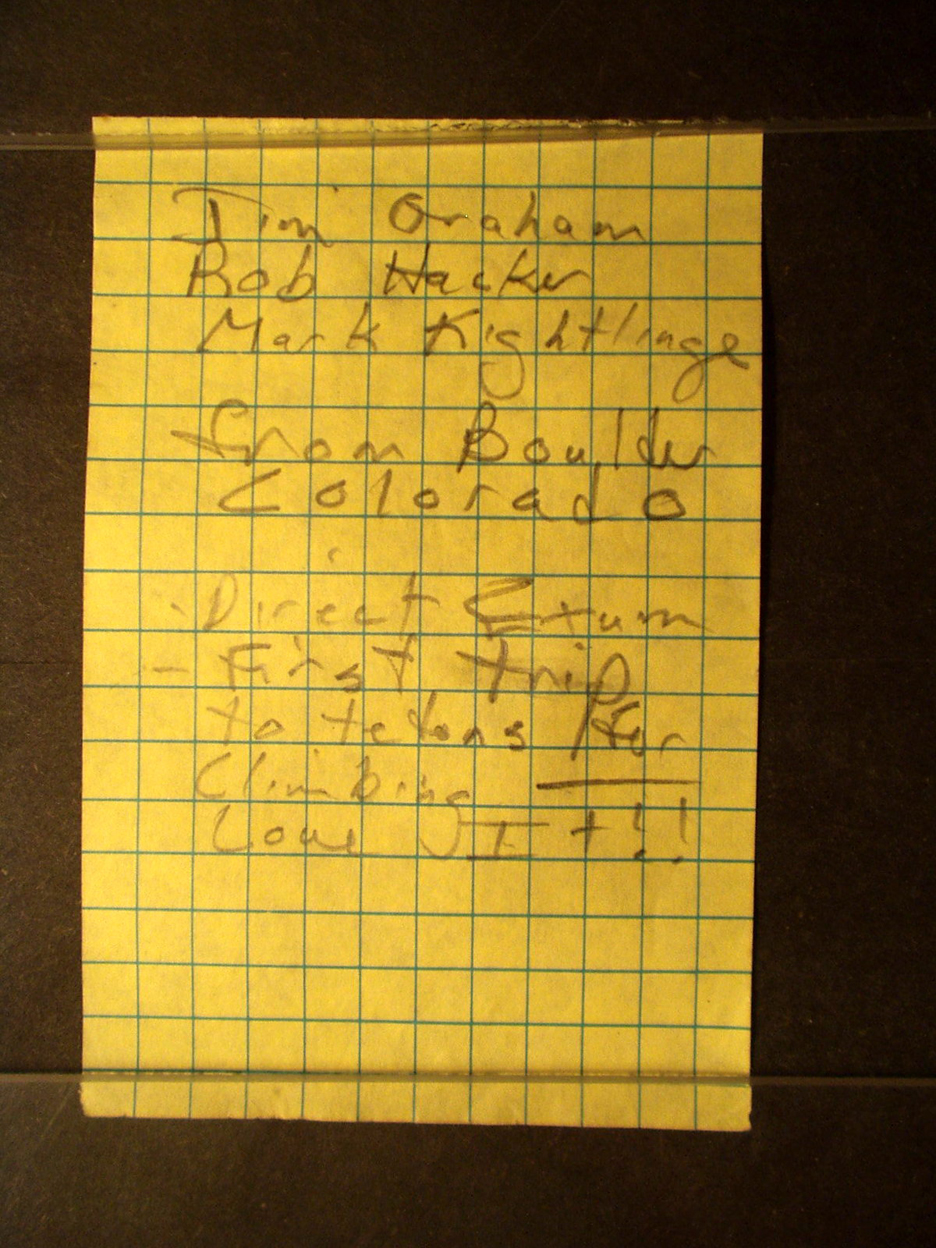 Jim Graham
Rob Hacker
Mark Kightlinge
from Boulder
Colorado
- Direct Exum
- First trip
to tetons for
Climbing
Love It!!